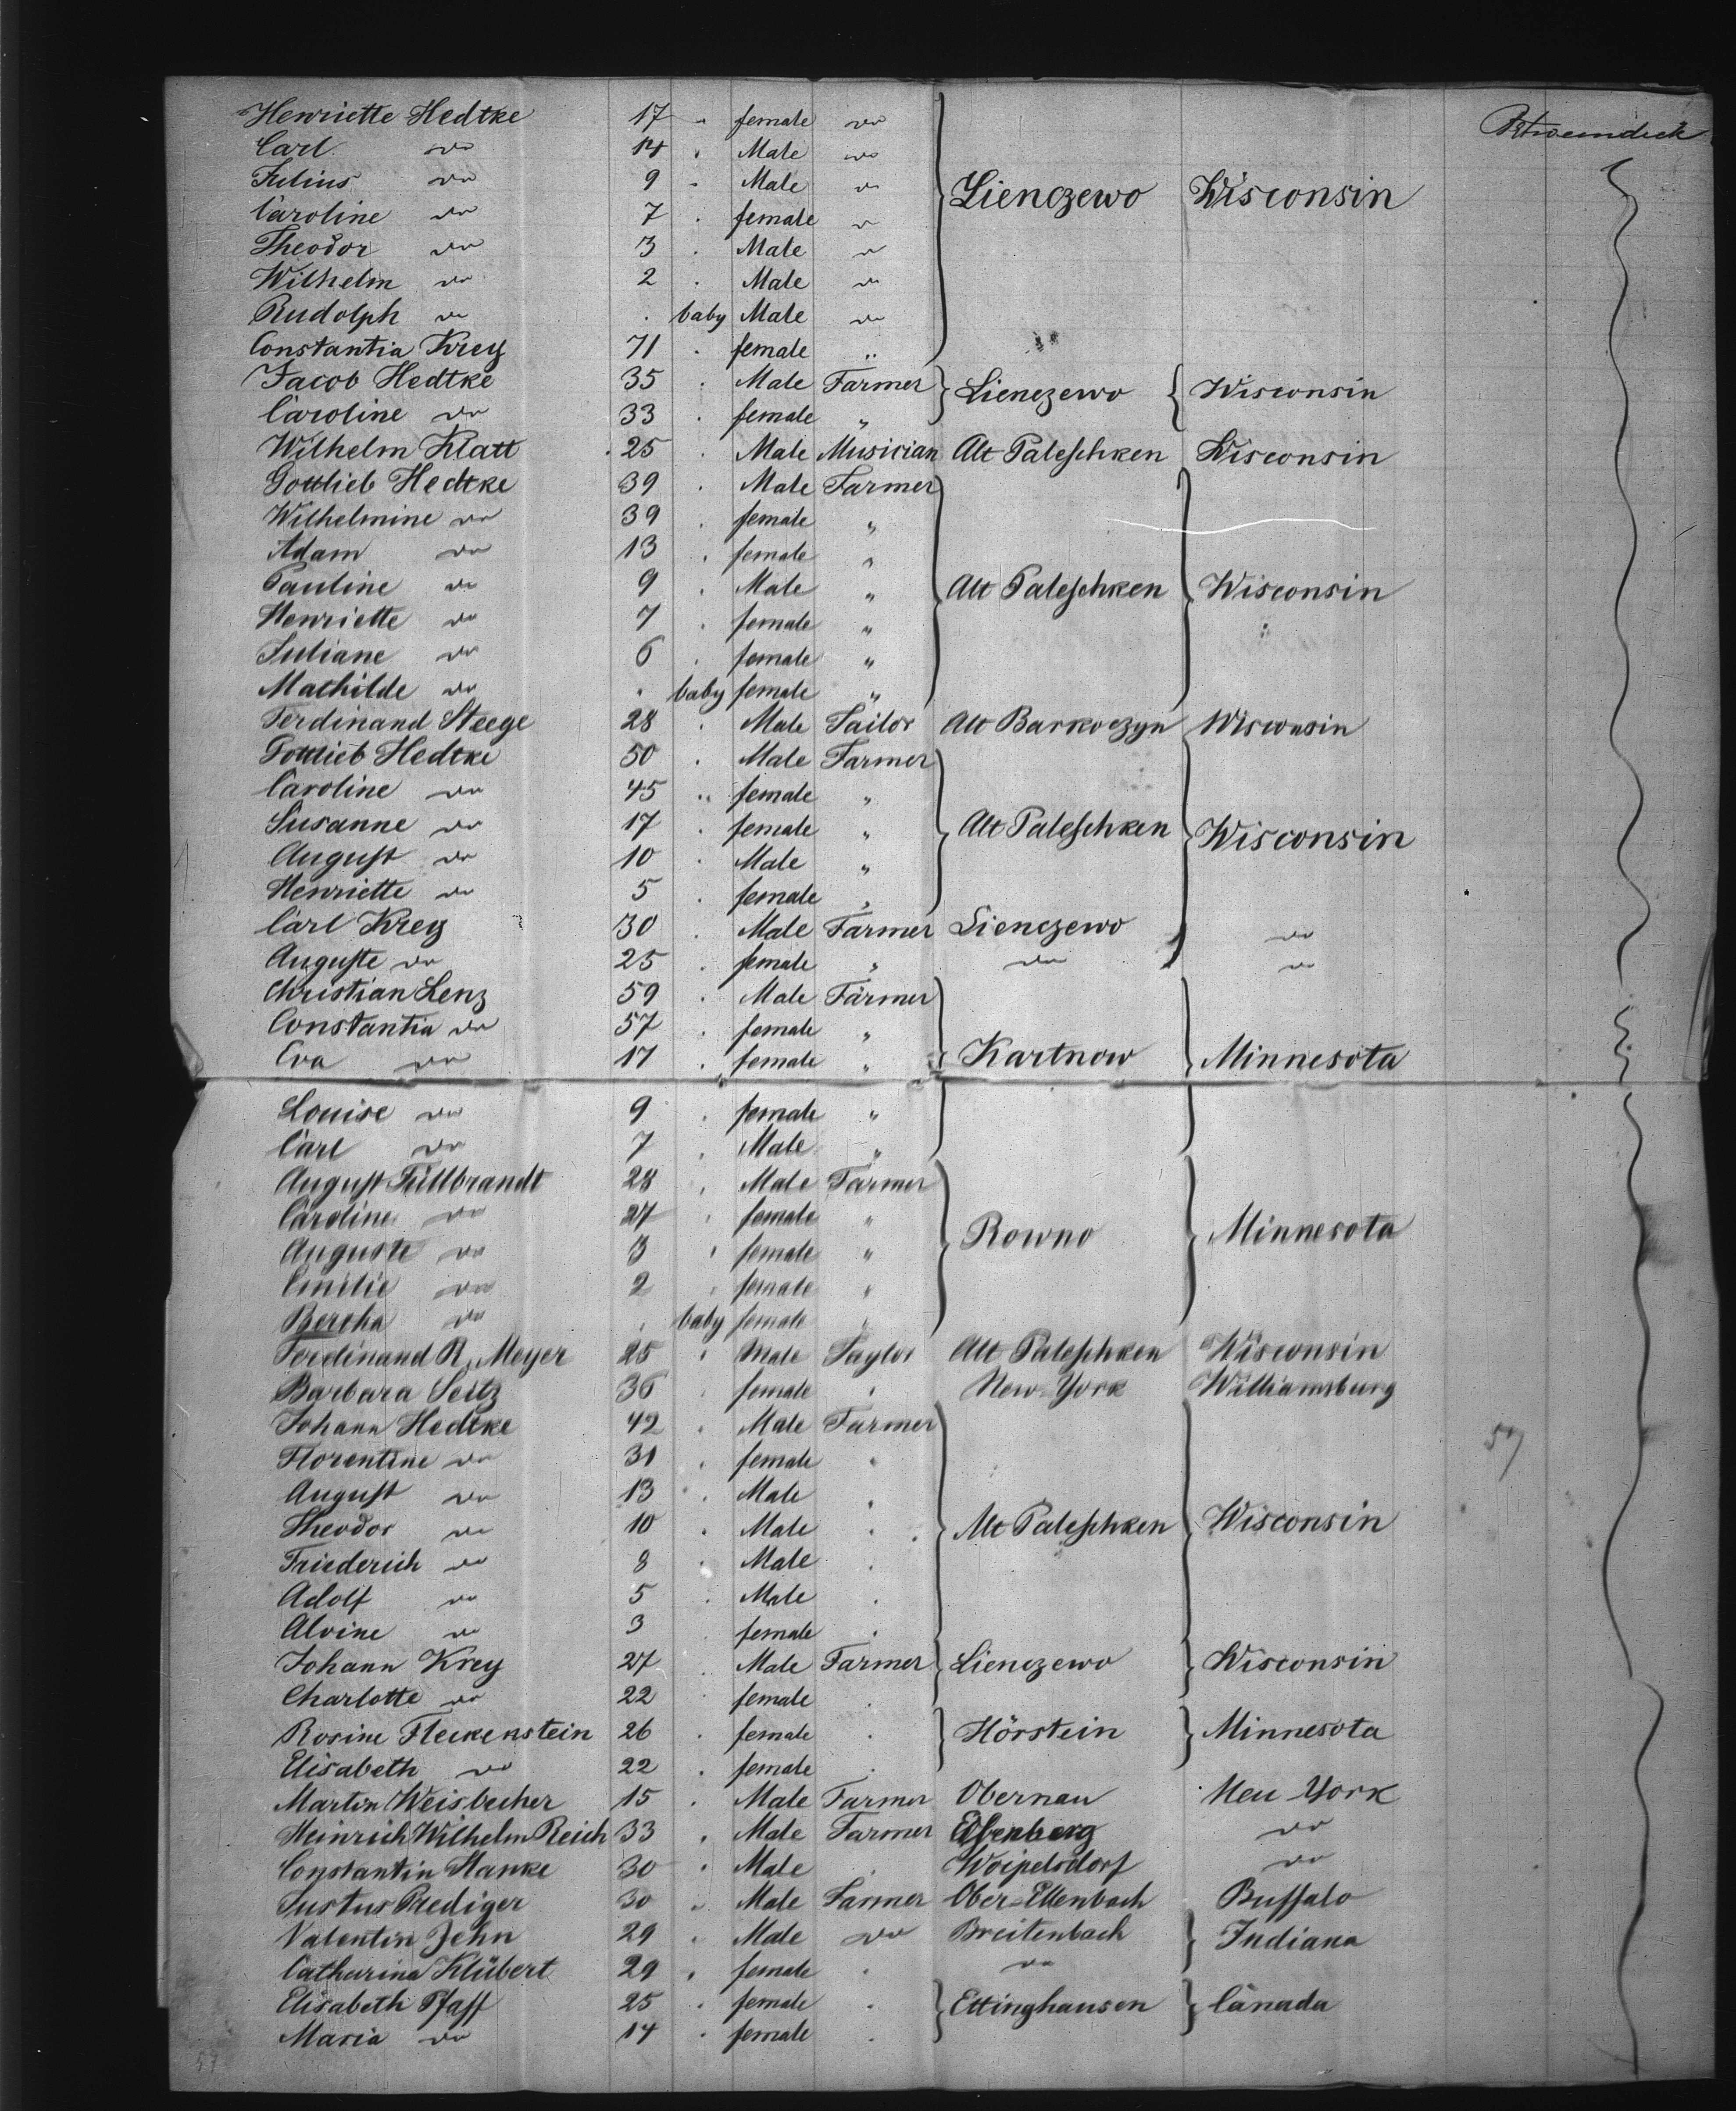 Henriette Hedtke 17 " female do
Carl do 14 " Male do
Julius do 9 " Male do Lienczewo Wisconsin
Caroline do 7 " female do
Theodor do 3 " Male do
Wilhelm do 2 " Male do
Rudolph do " baby Male do
Constantia Krey 71 " female "
Jacob Hedtke 35 " Male Farmer Lienczewo Wisconsin
Caroline do 33 " female "
Wilhelm Klatt 25 " Male Musician Alt Paleschken Wisconsin
Gottlieb Hedtke 39 " Male Farmer
Wilhelmine do 39 " female "
Adam do 13 " female "
Pauline do 9 " Male " Alt Paleschken Wisconsin
Henriette do 7 " female "
Juliane do 6 " female "
Mathilde do " baby female "
Ferdinand Steege 28 " Male Tailor Alt Barkoczyn Wisconsin
Gottlieb Hedtke 50 " Male Farmer
Caroline do 45 " female "
Susanne do 17 " female " Alt Paleschken Wisconsin
August do 10 " Male "
Henriette do 5 " female "
Carl Krey 30 " Male Farmer Lienczewo do
Auguste do 25 " female " do do
Christian Lenz 59 " Male Farmer
Constantia do 57 " female "
Eva do 17 " female " Kartnow Minnesota
Louise do 9 " female "
Carl do 7 " Male "
August Füllbrandt 28 " Male Farmer
Caroline do 27 " female " Rowno Minnesota
Auguste do 3 " female "
Emilie do 2 " female "
Bertha do " baby female "
Ferdinand R. Meyer 25 " Male Taylor Alt Paleschken Wisconsin
Barbara Seitz 36 " female " New-York Williamsburg
Johann Hedtke 42 " Male Farmer
Florentine do 31 " female " 57
August do 13 " Male "
Theodor do 10 " Male " Alt Paleschken Wisconsin
Friederich do 8 " Male "
Adolf do 5 " Male "
Alvine do 3 female "
Johann Krey 27 " Male Farmer Lienczewo Wisconsin
Charlotte do 22 " female "
Rosine Fleckenstein 26 " female " Hörstein Minnesota
Elisabeth do 22 " female "
Martin Weisbecher 15 " Male Farmer Obernau New York
Heinrich Wilhelm Reich 33 " Male Farmer do
Constantin Hanke 30 " Male " Woipelsdorf do
Justus Prediger 30 " Male Farmer Ober-Ellenbach Buffalo
Valentin Jehn 29 " Male do Breitenbach Indiana
Catharina Klübert 29 " female " do
Elisabeth Pfaff 25 " female " Ettinghausen Canada
Maria do 14 " female "
57